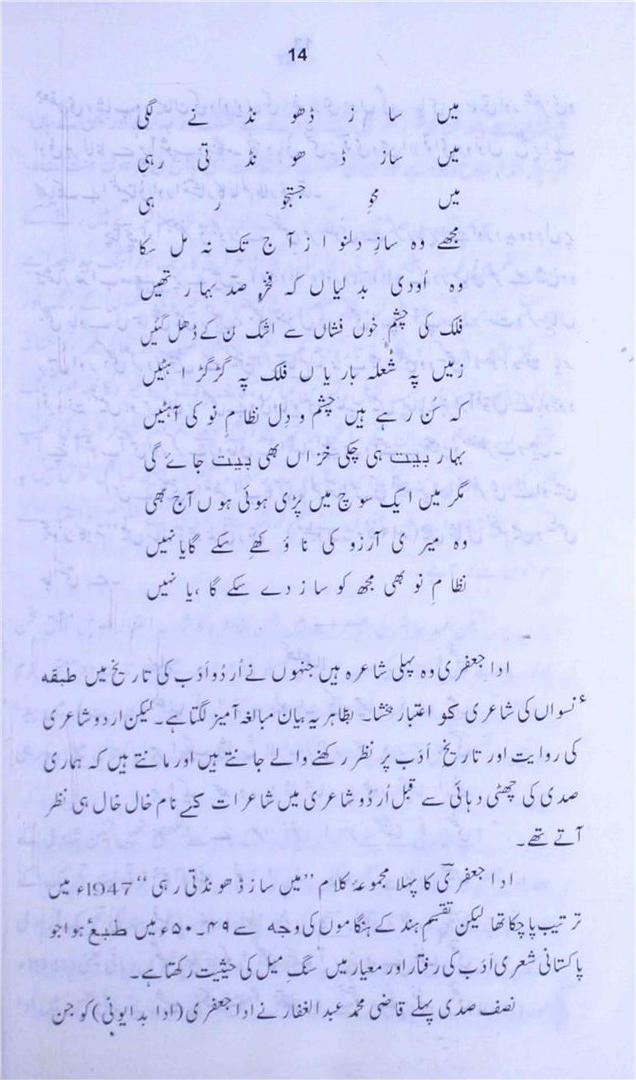 14
میں ساز ڈھونڈنے لگی
میں ساز ڈھونڈتی رہی
میں محوِ جستجو رہی
مجھے وہ سازِ دلنواز آج تک نہ مل سکا
وہ اُودی بدلیاں کہ فخرِ صد بہار تھیں
فلک کی چشمِ خوں فشاں سے اشک بن کے ڈھل گئیں
زمیں پہ شُعلہ باریاں فلک پہ گڑگڑاہٹیں
کہ سُن رہے ہیں چشم و دل نظامِ نو کی آہٹیں
بہار بیت ہی چکی خزاں بھی بیت جائے گی
مگر میں ایک سوچ میں پڑی ہوئی ہوں آج بھی
وہ میری آرزو کی ناؤ کھے سکے گا یا نہیں
نظامِ نو بھی مجھ کو ساز دے سکے گا، یا نہیں
ادا جعفری وہ پہلی شاعرہ ہیں جنہوں نے اُردُو اَدب کی تاریخ میں طبقہ
ٔ نسواں کی شاعری کو اعتبار بخشا۔ بظاہر یہ بیان مبالغہ آمیز لگتا ہے۔ لیکن اردو شاعری
کی روایت اور تاریخِ اَدب پر نظر رکھنے والے جانتے ہیں اور مانتے ہیں کہ ہماری
صدی کی چھٹی دہائی سے قبل اُردُو شاعری میں شاعرات کے نام خال خال ہی نظر
آتے تھے۔
ادا جعفریؔ کا پہلا مجموعۂ کلام ”میں ساز ڈھونڈتی رہی“ 1947ء میں
ترتیب پا چکا تھا لیکن تقسیمِ ہند کے ہنگاموں کی وجہ سے ۴۹۔۵۰ء میں طبع ہوا جو
پاکستانی شعری اَدب کی رفتار اور معیار میں سنگِ میل کی حیثیت رکھتا ہے۔
نصف صدی پہلے قاضی محمد عبدالغفار نے ادا جعفری (ادا بدایونی) کو جن